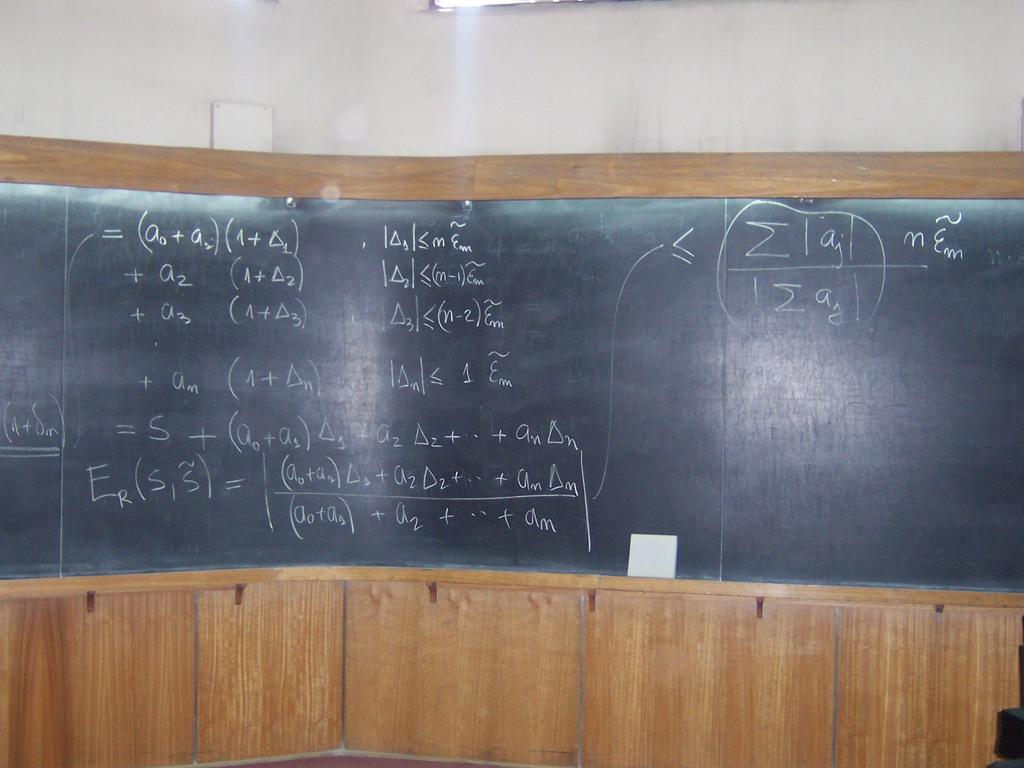 = (a₀ + a₁)(1 + Δ₁) , |Δ₁| ≤ n ε̃ₘ
+ a₂ (1 + Δ₂) |Δ₂| ≤ (n-1) ε̃ₘ
+ a₃ (1 + Δ₃) , |Δ₃| ≤ (n-2) ε̃ₘ
+ aₙ (1 + Δₙ) |Δₙ| ≤ 1 ε̃ₘ
(1+δₙ)
= S + (a₀ + a₁) Δ₁ + a₂ Δ₂ + ·· + aₙ Δₙ
E_R(S, S̃) = | ((a₀+a₁) Δ₁ + a₂ Δ₂ + ·· + aₙ Δₙ) / ((a₀+a₁) + a₂ + ·· + aₙ) |
≤ (Σ |aⱼ|) / (|Σ aⱼ|) n ε̃ₘ